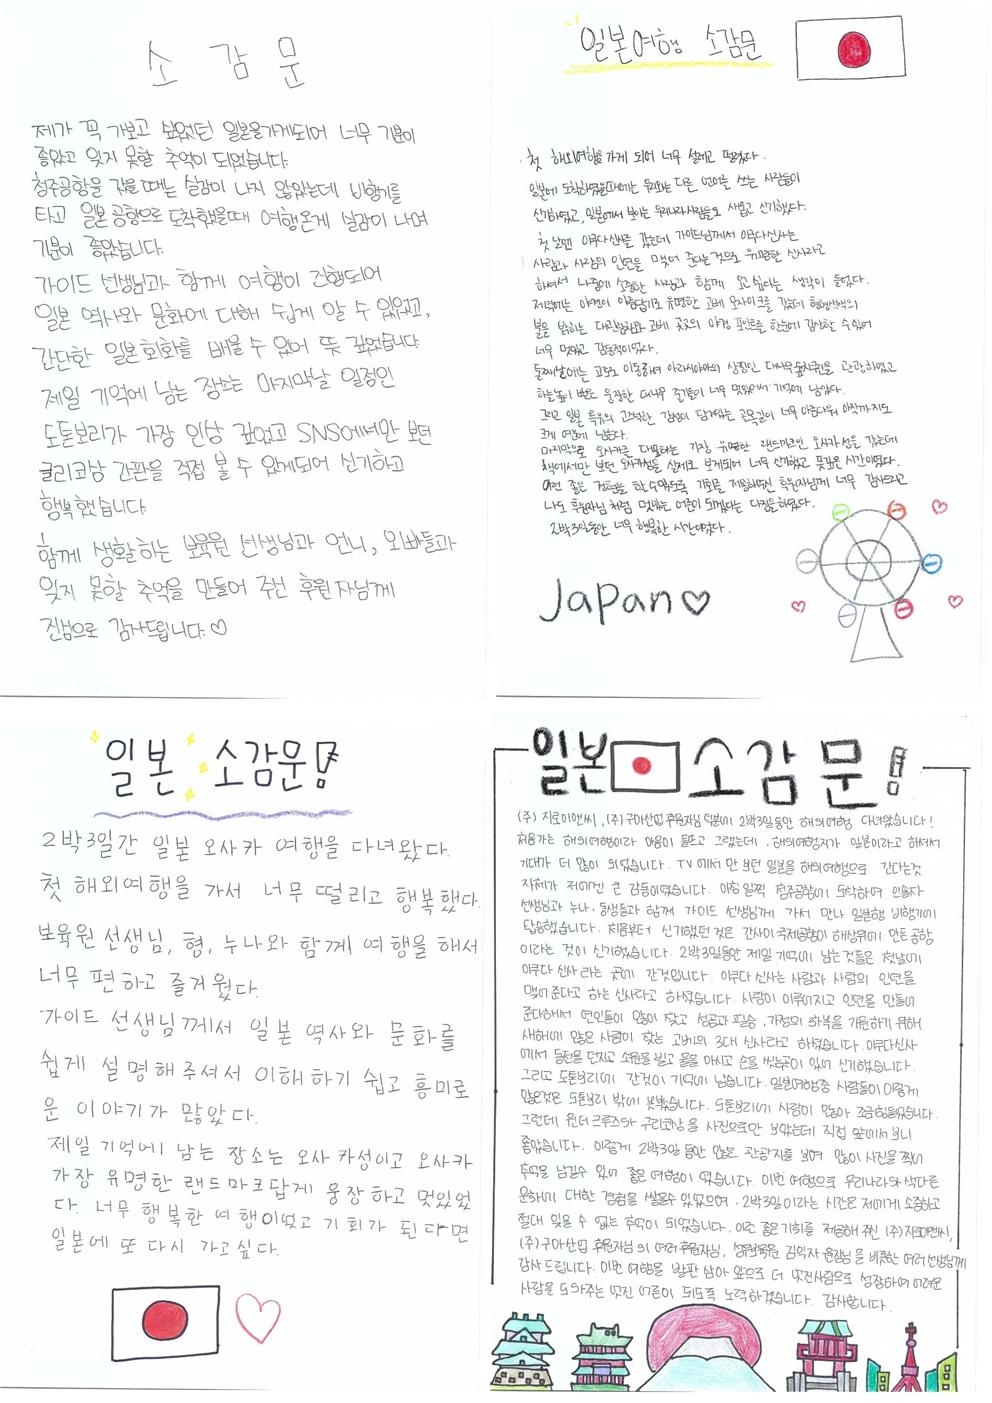 소 감 문
제가 꼭 가보고 싶었던 일본을가게되어 너무 기분이
좋았고 잊지 못할 추억이 되었습니다.
청주공항을 갔을 때는 실감이 나지 않았는데 비행기를
타고 일본 공항으로 도착했을때 여행온게 실감이 나며
기분이 좋았습니다.
가이드 선생님과 함께 여행이 진행되어
일본 역사와 문화에 대해 쉽게 알 수 있었고,
간단한 일본회화를 배울 수 있어 뜻 깊었습니다
제일 기억에 남는 장소는 마지막날 일정인
도톤보리가 가장 인상 깊었고 SNS에서만 보던
글리코상 간판을 직접 볼 수 있게되어 신기하고
행복했습니다
함께 생활하는 보육원 선생님과 언니, 오빠들과
잊지 못할 추억을 만들어 주신 후원자님께
진심으로 감사드립니다.♡
일본여행 소감문
첫 해외여행을가게 되어 너무 설레고 떨렸다.
일본에 도착하였을때에는 우리와는 다른 언어를 쓰는 사람들이
신기하였고, 일본에서 보이는 우리나라사람들도 새롭고 신기했다.
첫 날엔 이쿠타신사를 갔는데 가이드님께서 이쿠타신사는
사람과 사람의 인연을 맺어 준다는것으로 유명한 신사라고
하셔서 나중에 소중한 사람과 함께 오고싶다는 생각이 들었다.
저녁에는 야경이 아름답기로 유명한 고베 모자이크를 갔는데 형형색색의
빛을 밝히는 대관람차와 고베 곳곳의 야경 포인트를 한눈에 감상할 수있어
너무 멋있고 감동적이었다.
둘째날에는 교토로 이동하여 아라시야마의 상징인 대나무숲치쿠린을 관광하였고
하늘높이 뻗은 웅장한 대나무 줄기들이 너무 멋있어서 기억에 남았다.
그리고 일본 특유의 고즈넉한 감성이 담겨있는 골목길이 너무 아름다워 아직까지도
크게 여운에 남는다.
마지막으로 오사카를 대표하는 가장 유명한 랜드마크인 오사카성을 갔는데
책에서만 보던 오사카성을 실제로 보게되어 너무 신기했고 뜻깊은 시간이였다.
이런 좋은 경험을 할수있도록 기회를 제공해주신 후원자님께 너무 감사드리고
나도 후원자님 처럼 멋있는 어른이 되겠다는 다짐을하였다.
2박3일동안 너무 행복한 시간이었다.
Japan♡
일본 소감문!
2박3일간 일본 오사카 여행을 다녀왔다.
첫 해외여행을 가서 너무 떨리고 행복했다.
보육원 선생님, 형, 누나와 함께 여행을 해서
너무 편하고 즐거웠다.
가이드 선생님께서 일본 역사와 문화를
쉽게 설명해주셔서 이해하기 쉽고 흥미로
운 이야기가 많았다.
제일 기억에 남는 장소는 오사카성이고 오사카
가장 유명한 랜드마크답게 웅장하고 멋있었
다. 너무 행복한 여행이였고 기회가 된다면
일본에 또 다시 가고싶다.
일본 소감문!
(주) 지로이앤씨, (주)구아산업 후원자님 덕분에 2박3일동안 해외여행 다녀왔습니다!
처음가는 해외여행이라 마음이 들뜨고 그랬는데, 해외여행지가 일본이라고 하셔서
기대가 더 많이 되었습니다. TV에서만 보던 일본을 해외여행으로 간다는것
자체가 저에겐 큰 감동이였습니다. 아침 일찍 청주공항에 도착하여 인솔자
선생님과 누나, 동생들과 함께 가이드 선생님께 가서 만나 일본행 비행기에
탑승했습니다. 처음부터 신기했던 것은 간사이국제공항이 해상위에 만든공항
이라는 것이 신기했습니다. 2박3일동안 제일 기억에 남는것들은 첫날에
이쿠다 신사 라는 곳에 간것입니다. 이쿠다 신사는 사람과 사람의 인연을
맺어 준다고 하는 신사라고 하셨습니다. 사랑이 이루어지고 인연을 만들어
준다해서 연인들이 많이 찾고 성공과 필승, 가정의 화복을 기원하기 위해
새해에 많은 사람이 찾는 고베의 3대 신사라고 하셨습니다. 이쿠다신사
에서 동전을 던지고 소원을 빌고 물을 마시고 손을 씻는곳이 있어 신기했습니다.
그리고 도톤보리에 간것이 기억에 남습니다. 일본여행중 사람들이 이렇게
많은것은 도톤보리 밖에 못봤습니다. 도톤보리에 사람이 많아 조금힘들었습니다.
그런데 원더크루즈와 구리코상을 사진으로만 보았는데 직접 앞에서 보니
좋았습니다. 이렇게 2박3일 동안 많은 관광지를 보며 많이 사진을 찍어
추억을 남길수 있어 좋은 여행이 였습니다. 이번 여행으로 우리나라와 색다른
문화에 대한 경험을 쌓을수 있었으며, 2박3일이라는 시간은 저에게 소중하고
절대 잊을 수 없는 추억이 되었습니다. 이런 좋은 기회를 제공해 주신 (주)지로이앤씨,
(주)구아산업 후원자님 외 여러후원자님, 김익자 원장님을 비롯한 여러 선생님께
감사드립니다. 이번 여행을 발판 삼아 앞으로 더 멋진사람으로 성장하여 어려운
사람을 도와주는 멋진 어른이 되도록 노력하겠습니다. 감사합니다.